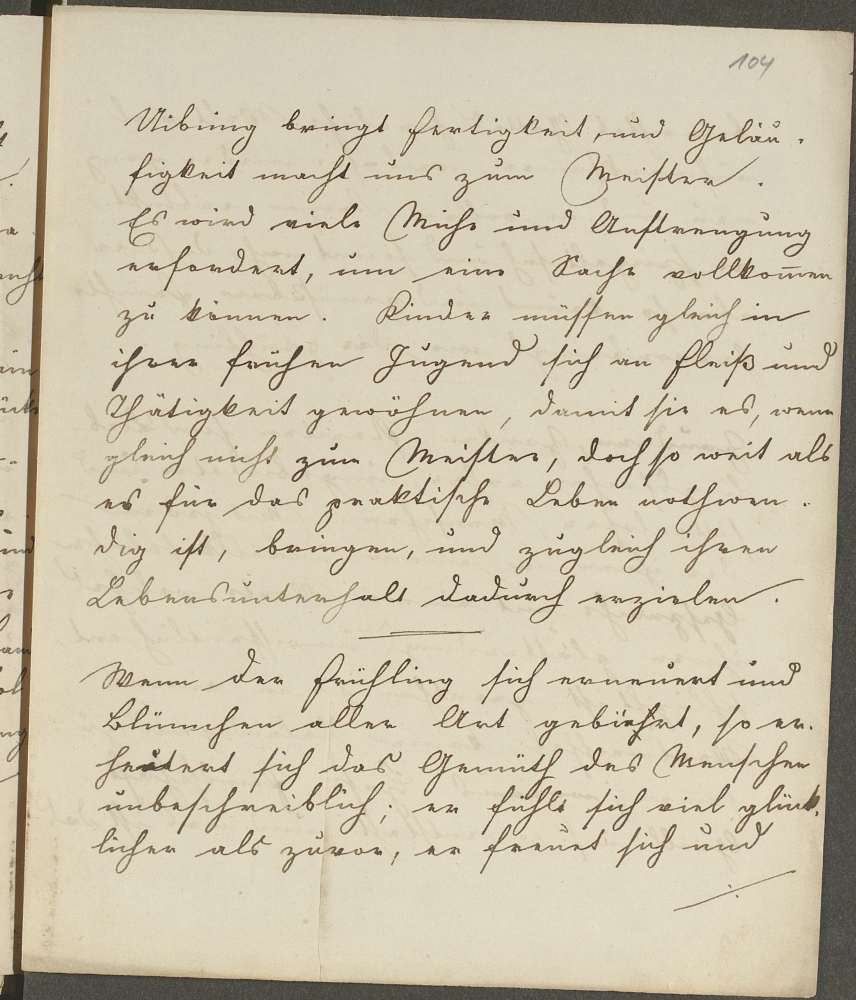 104
Uibung bringt Fertigkeit, und Geläu-
figkeit macht uns zum Meister.
Es wird viele Mühe und Anstrengung
erfordert, um eine Sache vollkom̄en
zu können. Kinder müssen gleich in
ihrer frühen Jugend sich an Fleiß und
Thätigkeit gewöhnen, damit sie es, wenn
gleich nicht zum Meister, doch so weit als
es für das praktische Leben nothwen-
dig ist, bringen, und zugleich ihren
Lebensunterhalt dadurch erzielen.
Wenn der Frühling sich erneuert und
Blümchen aller Art gebiehrt, so er-
heitert sich das Gemüth des Menschen
unbeschreiblich; er fühlt sich viel glück-
licher als zuvor, er freuet sich und